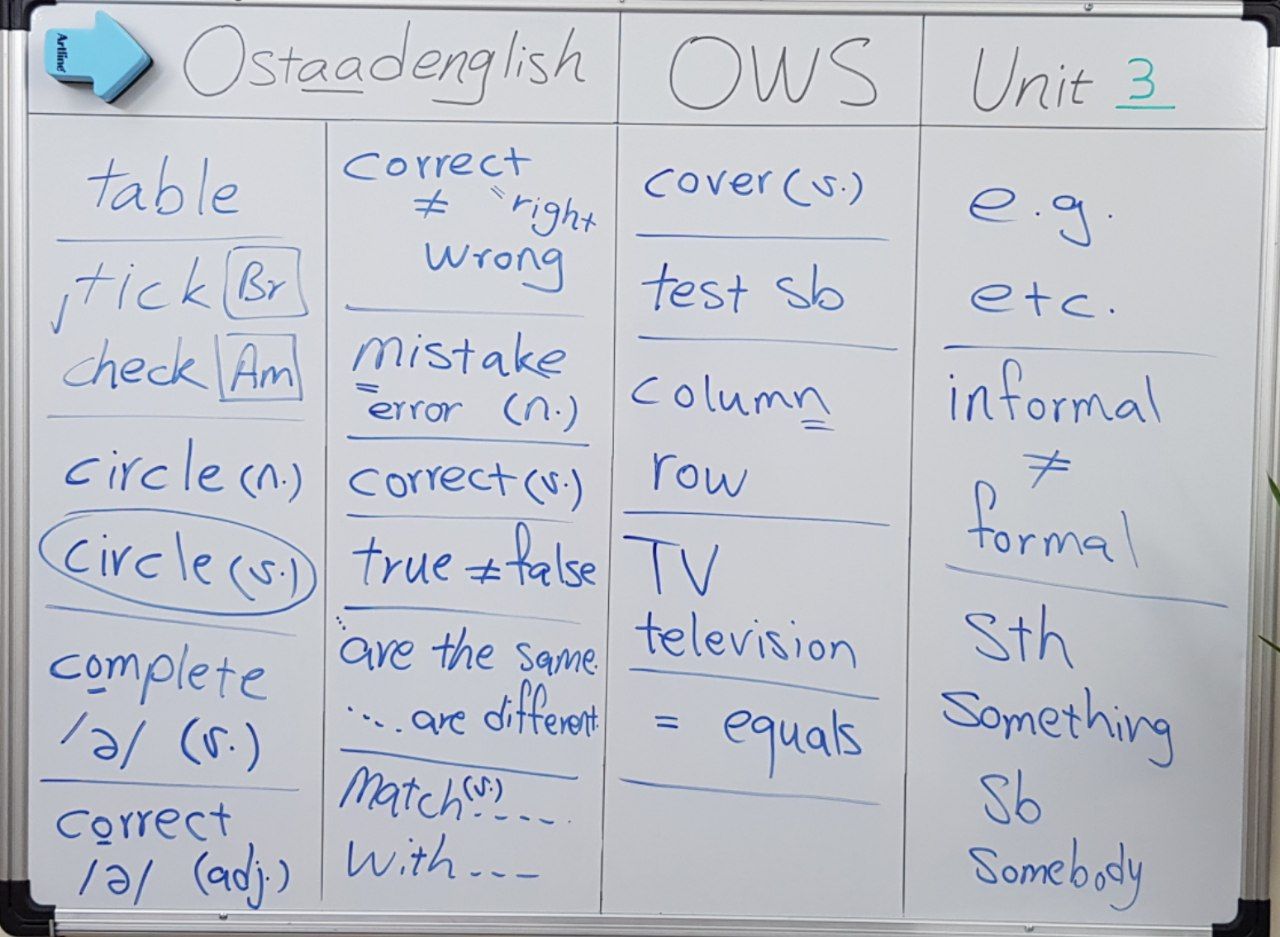 Artline
Ostaadenglish
OWS
Unit 3
table
tick Br
check Am
circle (n.)
circle (v.)
complete
/ə/ (v.)
correct
/ə/ (adj.)
correct
≠ = right
wrong
mistake
= error (n.)
correct (v.)
true ≠ false
... are the same.
... are different.
Match (v.) .....
with ---
cover (v.)
test sb
column
row
TV
television
= equals
e.g.
etc.
informal
≠
formal
Sth
Something
Sb
Somebody